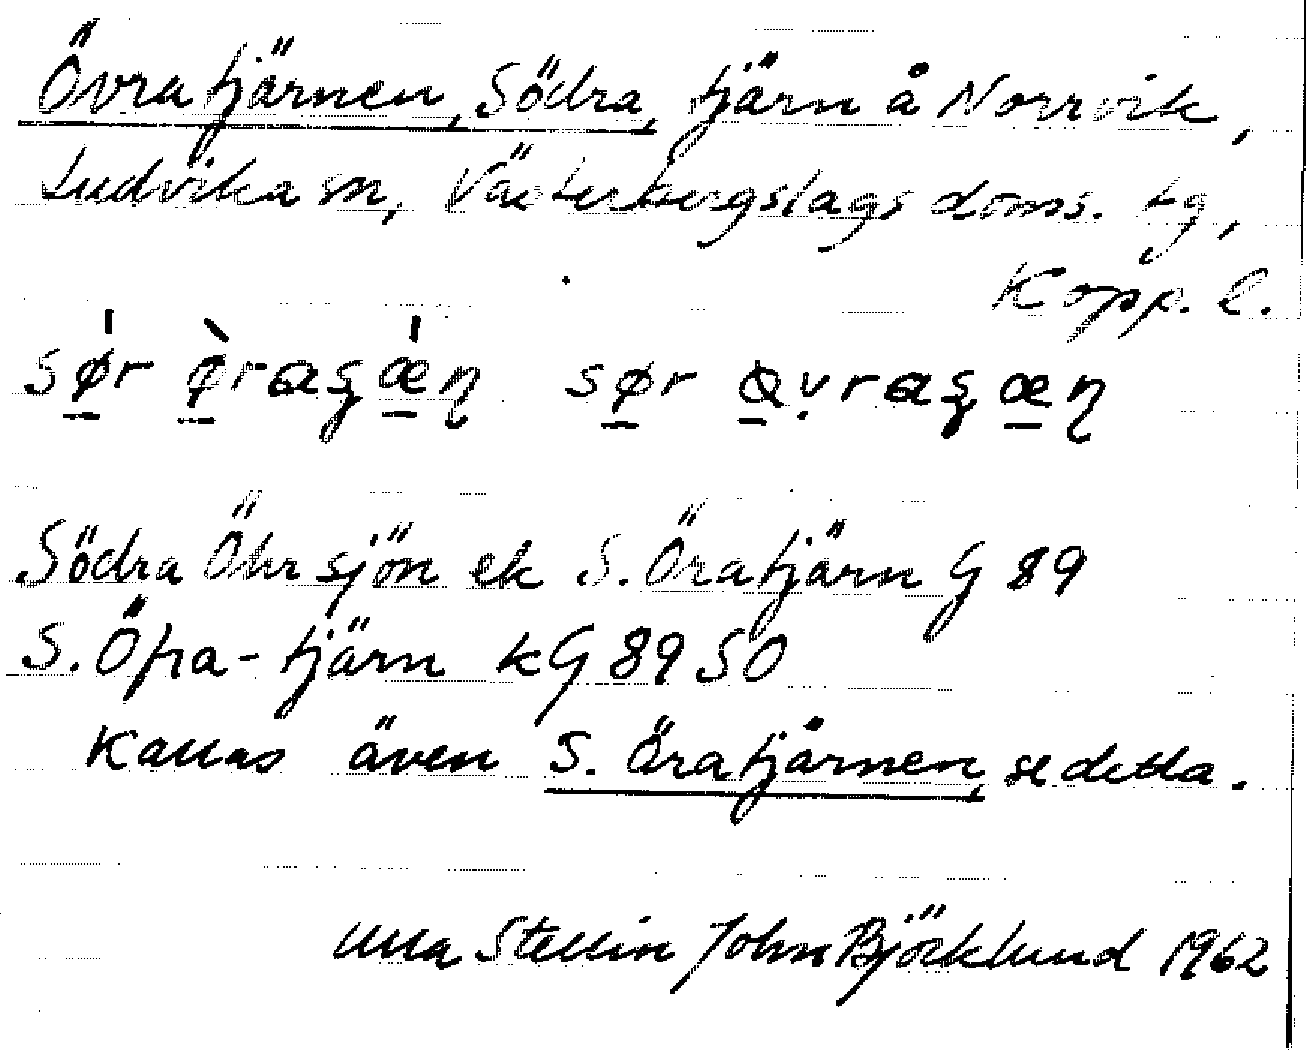 Övratjärnen, Södra, tjärn å Norrvik,
Ludvika sn, Västerbergslags doms. tg,
Kopp. l.
sø̠r ø̠̀raʂǽ̠ɳ sø̠r ø̠vraʂæ̠ɳ
Södra Öhrsjön ek S. Öratjärn G 89
S. Öfra-tjärn kG 89 SO
Kallas även S. Öratjärnen, se detta.
Ulla Stellin John Björklund 1962